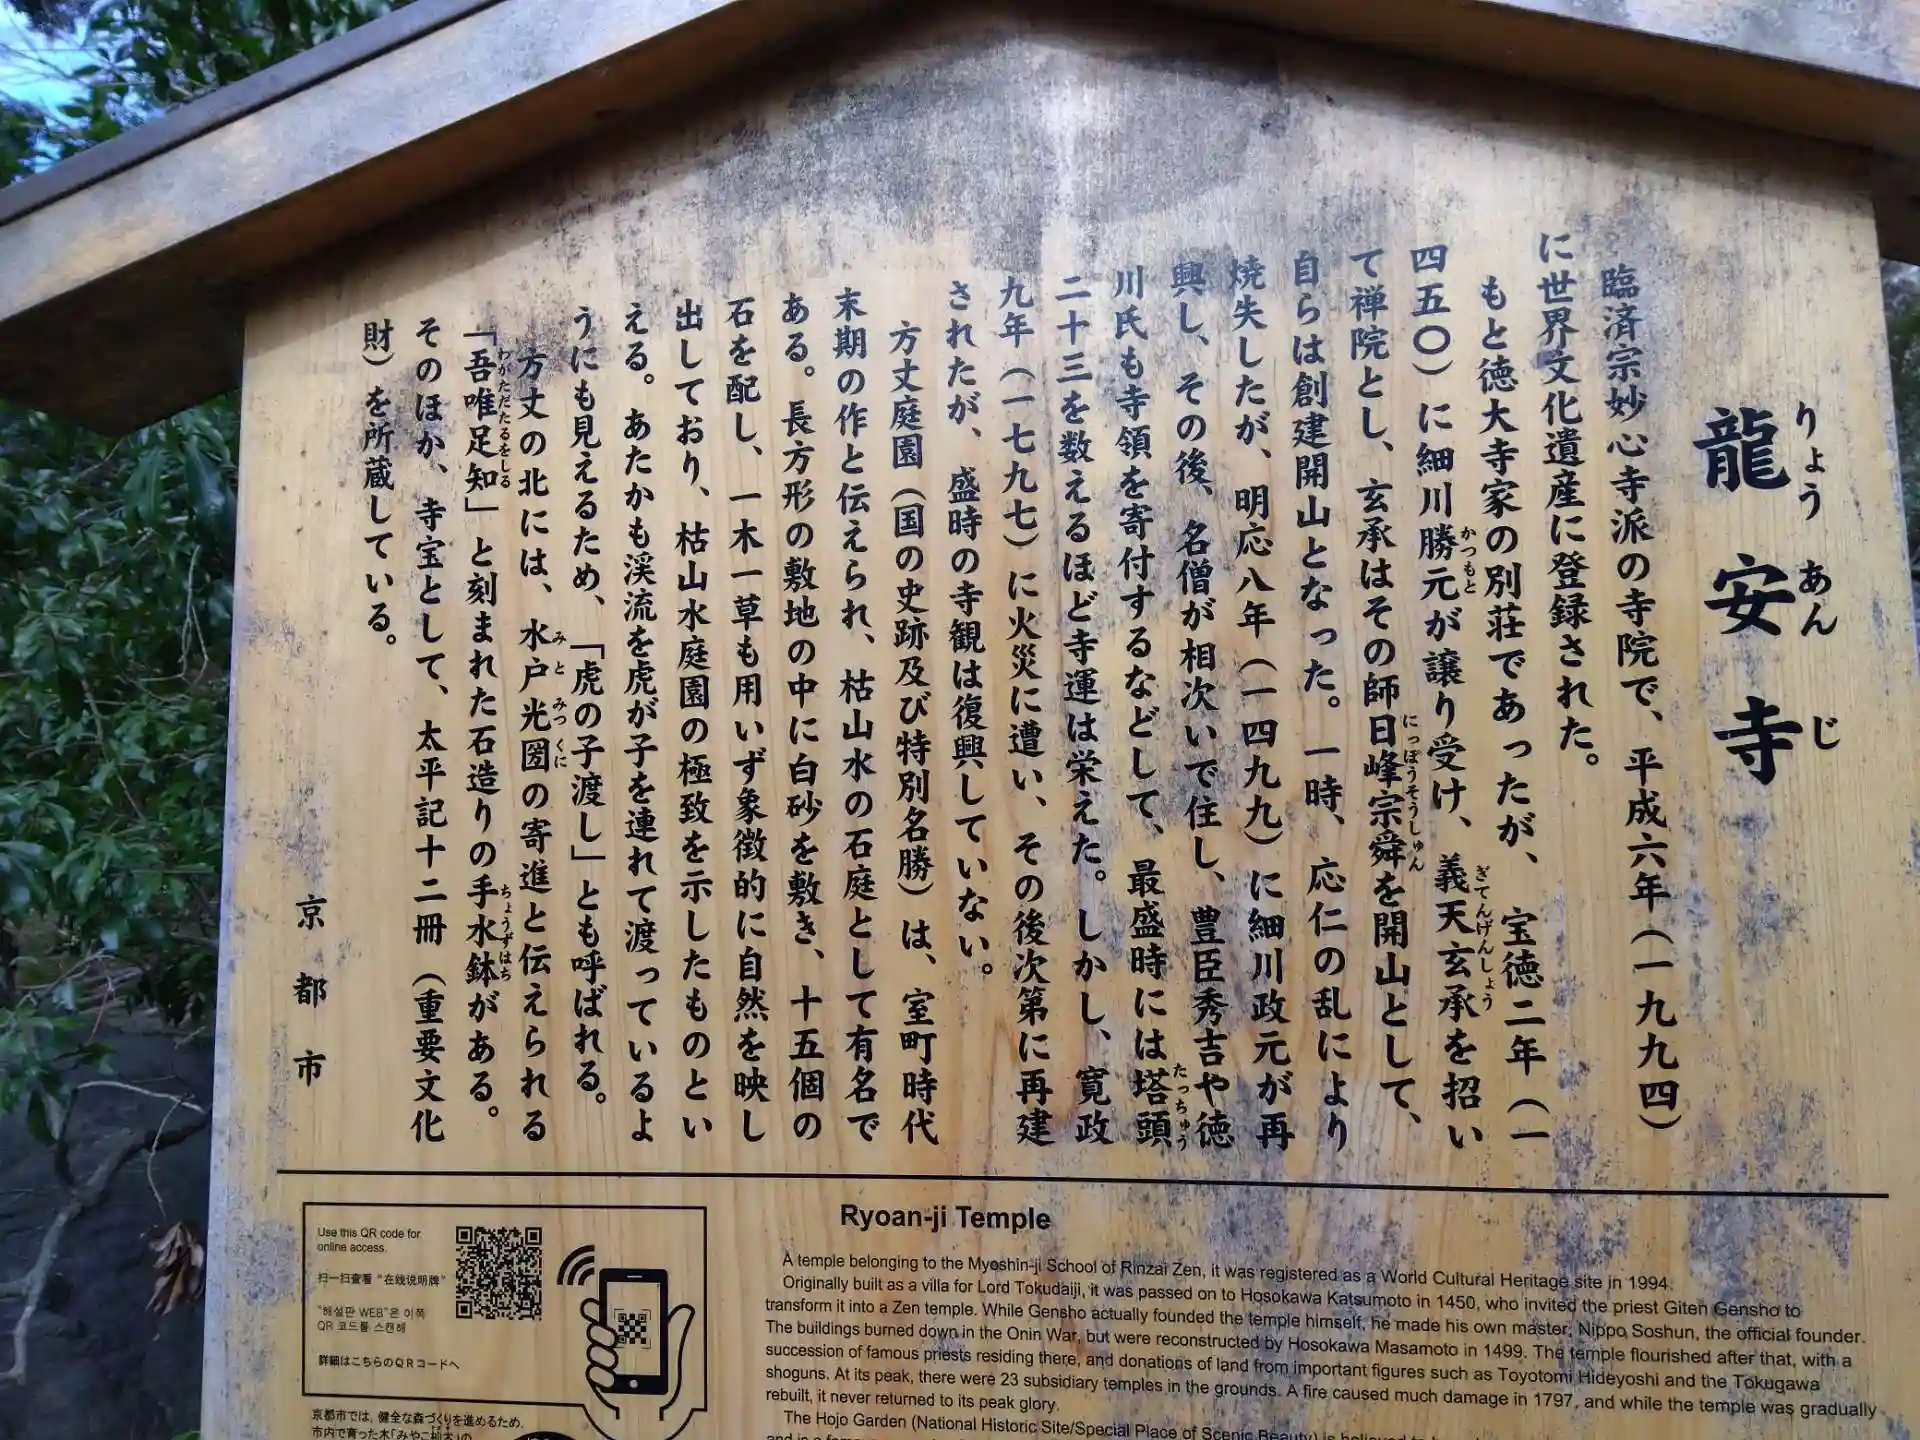 龍安寺
りょうあんじ
臨済宗妙心寺派の寺院で、平成六年（一九九四）
に世界文化遺産に登録された。
もと徳大寺家の別荘であったが、宝徳二年（一
四五〇）に細川勝元が譲り受け、義天玄承を招い
かつもと
ぎてんげんしょう
て禅院とし、玄承はその師日峰宗舜を開山として、
にっぽうそうしゅん
自らは創建開山となった。一時、応仁の乱により
焼失したが、明応八年（一四九九）に細川政元が再
興し、その後、名僧が相次いで住し、豊臣秀吉や徳
川氏も寺領を寄付するなどして、最盛時には塔頭
たっちゅう
二十三を数えるほど寺運は栄えた。しかし、寛政
九年（一七九七）に火災に遭い、その後次第に再建
されたが、盛時の寺観は復興していない。
方丈庭園（国の史跡及び特別名勝）は、室町時代
末期の作と伝えられ、枯山水の石庭として有名で
ある。長方形の敷地の中に白砂を敷き、十五個の
石を配し、一木一草も用いず象徴的に自然を映し
出しており、枯山水庭園の極致を示したものとい
える。あたかも渓流を虎が子を連れて渡っているよ
うにも見えるため、「虎の子渡し」とも呼ばれる。
方丈の北には、水戸光圀の寄進と伝えられる
みとみつくに
「吾唯足知」と刻まれた石造りの手水鉢がある。
わがただたるをしる
ちょうずはち
そのほか、寺宝として、太平記十二冊（重要文化
財）を所蔵している。
京都市
Use this QR code for
online access.
扫一扫查看“在线说明牌”
"해설판 WEB"은 이쪽
QR 코드를 스캔해
詳細はこちらのQRコードへ
京都市では、健全な森づくりを進めるため、
市内で育った木「みやこ杣木」の
Ryoan-ji Temple
A temple belonging to the Myoshin-ji School of Rinzai Zen, it was registered as a World Cultural Heritage site in 1994.
Originally built as a villa for Lord Tokudaiji, it was passed on to Hosokawa Katsumoto in 1450, who invited the priest Giten Gensho to
transform it into a Zen temple. While Gensho actually founded the temple himself, he made his own master, Nippo Soshun, the official founder.
The buildings burned down in the Onin War, but were reconstructed by Hosokawa Masamoto in 1499. The temple flourished after that, with a
succession of famous priests residing there, and donations of land from important figures such as Toyotomi Hideyoshi and the Tokugawa
shoguns. At its peak, there were 23 subsidiary temples in the grounds. A fire caused much damage in 1797, and while the temple was gradually
rebuilt, it never returned to its peak glory.
The Hojo Garden (National Historic Site/Special Place of Scenic Beauty) is believed to